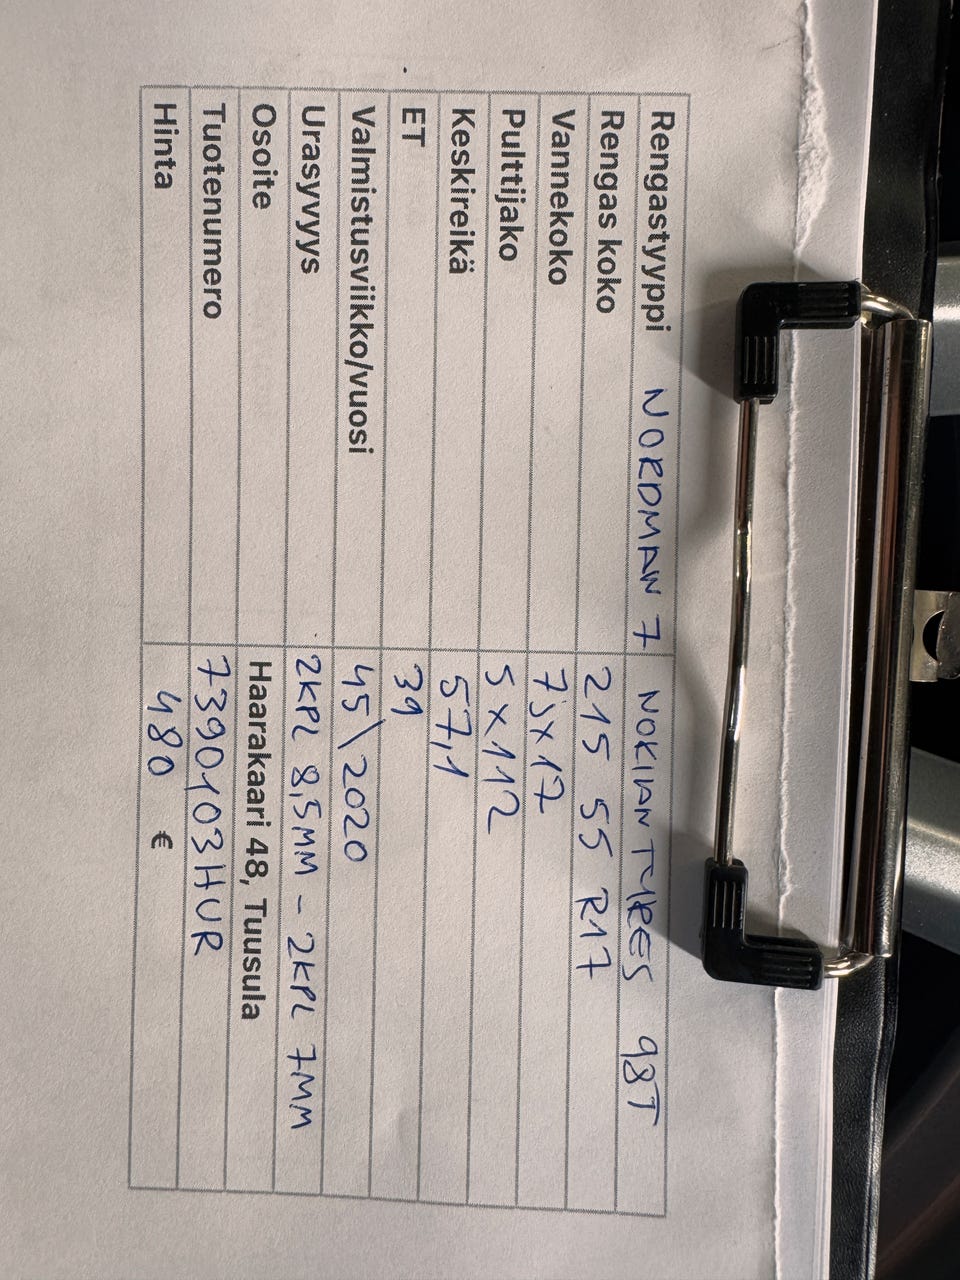 Rengastyyppi NORDMAN 7 NOKIAN TYRES 98T
Rengas koko 215 55 R17
Vannekoko 7Jx17
Pulttijako 5x112
Keskireikä 57,1
ET 39
Valmistusviikko/vuosi 45\2020
Urasyvyys 2KPL 8,5MM - 2KPL 7MM
Osoite Haarakaari 48, Tuusula
Tuotenumero 7390103HUR
Hinta 480 €